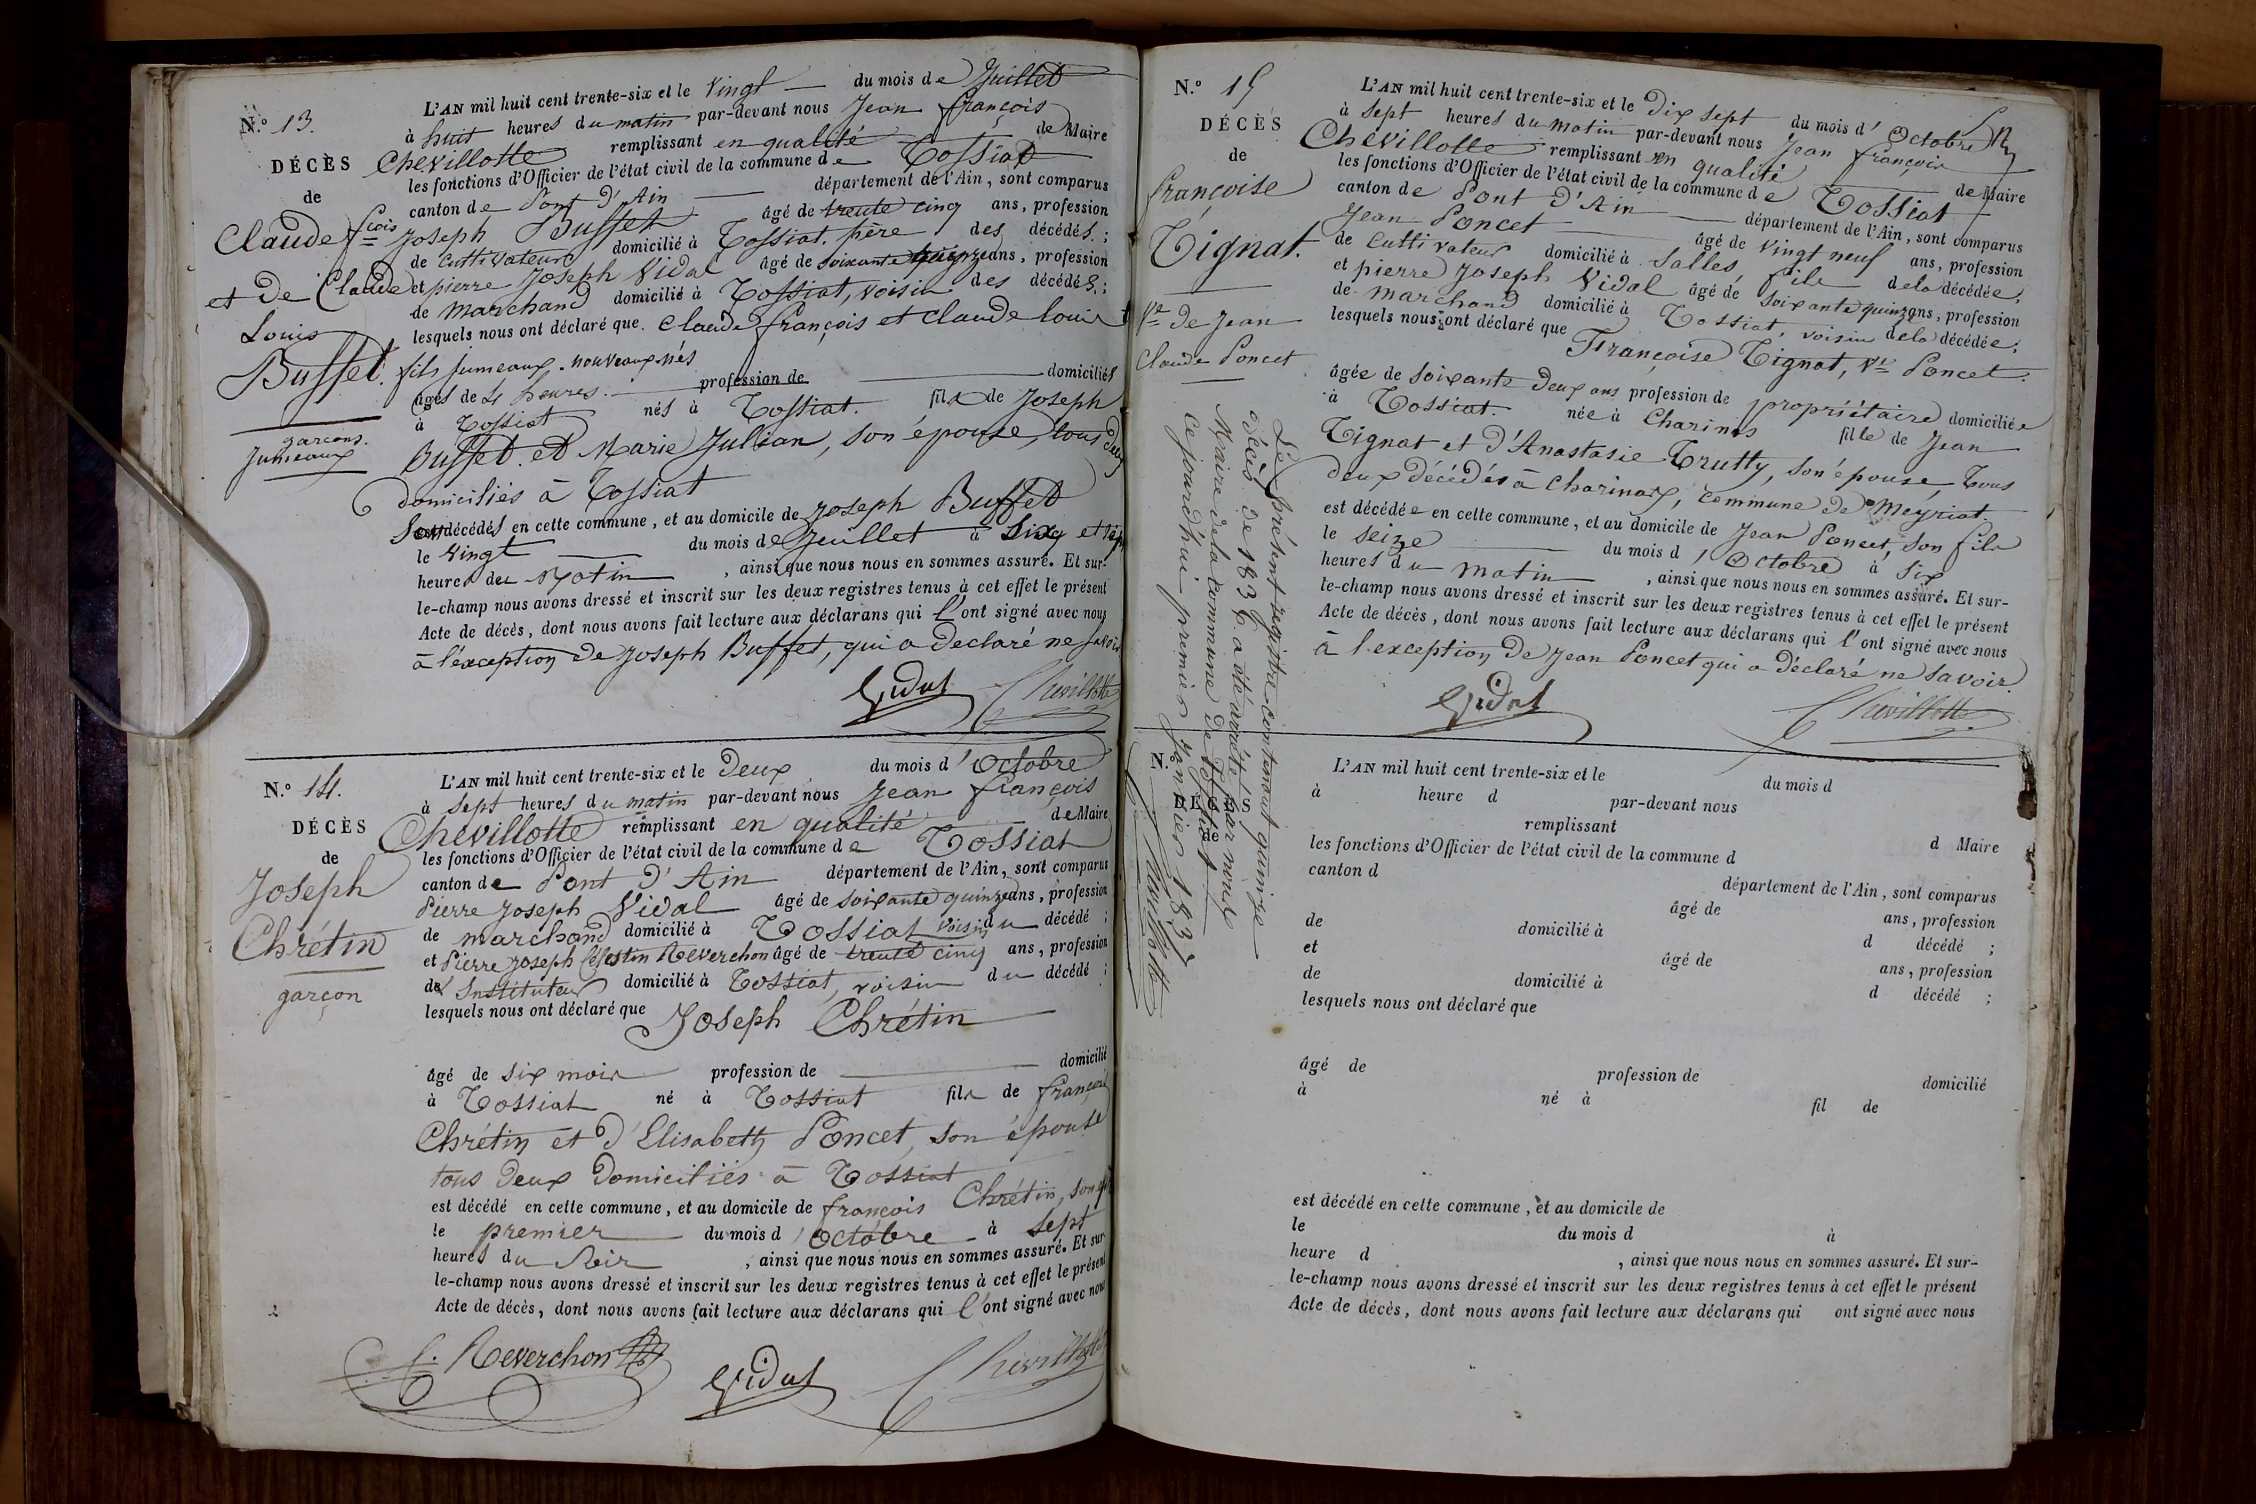 N.º 13.
DÉCÈS
de
Claude fcois
et de Claude
Louis
Buffet.
garçons.
Jumeaux
L'AN mil huit cent trente-six et le vingt du mois de Juillet
à huit heures du matin par-devant nous Jean françois
Chevillotte remplissant en qualité de Maire
les fonctions d'Officier de l'état civil de la commune de Tossiat
canton de Pont d'Ain département de l'Ain, sont comparus
Joseph Buffet âgé de trente cinq ans, profession
de cultivateur domicilié à Tossiat. père des décédés ;
et pierre Joseph Vidal âgé de soixante quinze ans, profession
de marchand domicilié à Tossiat, voisin des décédés ;
lesquels nous ont déclaré que claude françois et claude louis
fils jumeaux nouveaux nés
âgés de 4 heures. profession de domiciliés
à Tossiat nés à Tossiat. fils de Joseph
Buffet et Marie Julian, son épouse, tous deux
domiciliés à Tossiat
sont décédés en cette commune, et au domicile de Joseph Buffet
le vingt du mois de Juillet à six et sept
heures du Matin , ainsi que nous nous en sommes assuré. Et sur-
le-champ nous avons dressé et inscrit sur les deux registres tenus à cet effet le présent
Acte de décès, dont nous avons fait lecture aux déclarans qui l'ont signé avec nous
à l'exception de Joseph Buffet, qui a déclaré ne savoir
Vidal Chevillotte
N.º 14.
DÉCÈS
de
Joseph
Chrétin
garçon
L'AN mil huit cent trente-six et le deux du mois d'octobre
à sept heures du matin par-devant nous Jean françois
Chevillotte remplissant en qualité de Maire
les fonctions d'Officier de l'état civil de la commune de Tossiat
canton de Pont d'Ain département de l'Ain, sont comparus
Pierre Joseph Vidal âgé de soixante quinze ans, profession
de marchand domicilié à Tossiat voisin du décédé ;
et Pierre Joseph Célestin Reverchon âgé de trente cinq ans, profession
de Instituteur domicilié à Tossiat, voisin du décédé ;
lesquels nous ont déclaré que Joseph Chrétin
âgé de six mois profession de domicilié
à Tossiat né à Tossiat fils de françois
Chrétin et d'Elisabeth Poncet, son épouse
tous deux domiciliés à Tossiat
est décédé en cette commune, et au domicile de françois Chrétin, son
le premier du mois d'octobre à sept
heures du Soir , ainsi que nous nous en sommes assuré. Et sur-
le-champ nous avons dressé et inscrit sur les deux registres tenus à cet effet le présent
Acte de décès, dont nous avons fait lecture aux déclarans qui l'ont signé avec nous
Reverchon Vidal Chevillotte
N.º 15
DÉCÈS
de
françoise
Tignat.
Ve de Jean
Claude Poncet
L'AN mil huit cent trente-six et le dix sept du mois d'octobre
à sept heures du matin par-devant nous Jean françois
Chevillotte remplissant en qualité de Maire
les fonctions d'Officier de l'état civil de la commune de Tossiat
canton de Pont d'Ain département de l'Ain, sont comparus
Jean Poncet âgé de vingt neuf ans, profession
de cultivateur domicilié à Salles, fils de la décédée ;
et pierre Joseph Vidal âgé de soixante quinze ans, profession
de marchand domicilié à Tossiat voisin de la décédée ;
lesquels nous ont déclaré que Françoise Tignat, Ve Poncet.
âgée de soixante deux ans profession de propriétaire domiciliée
à Tossiat. née à Charinas fille de Jean
Tignat et d'Anastasie Trutty, son épouse, tous
deux décédés à Charinas, commune de Meyriat.
est décédée en cette commune, et au domicile de Jean Poncet, son fils
le seize du mois d'octobre à six
heures du matin , ainsi que nous nous en sommes assuré. Et sur-
le-champ nous avons dressé et inscrit sur les deux registres tenus à cet effet le présent
Acte de décès, dont nous avons fait lecture aux déclarans qui l'ont signé avec nous
à l'exception de Jean Poncet qui a déclaré ne savoir.
Vidal Chevillotte
Le présent registre contenant quinze
décès de 1836 a été arrêté par nous
Maire de la commune de Tossiat
ce jourd'hui premier Janvier 1837
Chevillotte
N.
DÉCÈS
de
L'AN mil huit cent trente-six et le du mois d
à heure d par-devant nous
remplissant d Maire
les fonctions d'Officier de l'état civil de la commune d
canton d département de l'Ain, sont comparus
âgé de ans, profession
de domicilié à d décédé ;
et âgé de ans, profession
de domicilié à d décédé ;
lesquels nous ont déclaré que
âgé de profession de domicilié
à né à fil de
est décédé en cette commune, et au domicile de
le du mois d à
heure d , ainsi que nous nous en sommes assuré. Et sur-
le-champ nous avons dressé et inscrit sur les deux registres tenus à cet effet le présent
Acte de décès, dont nous avons fait lecture aux déclarans qui ont signé avec nous